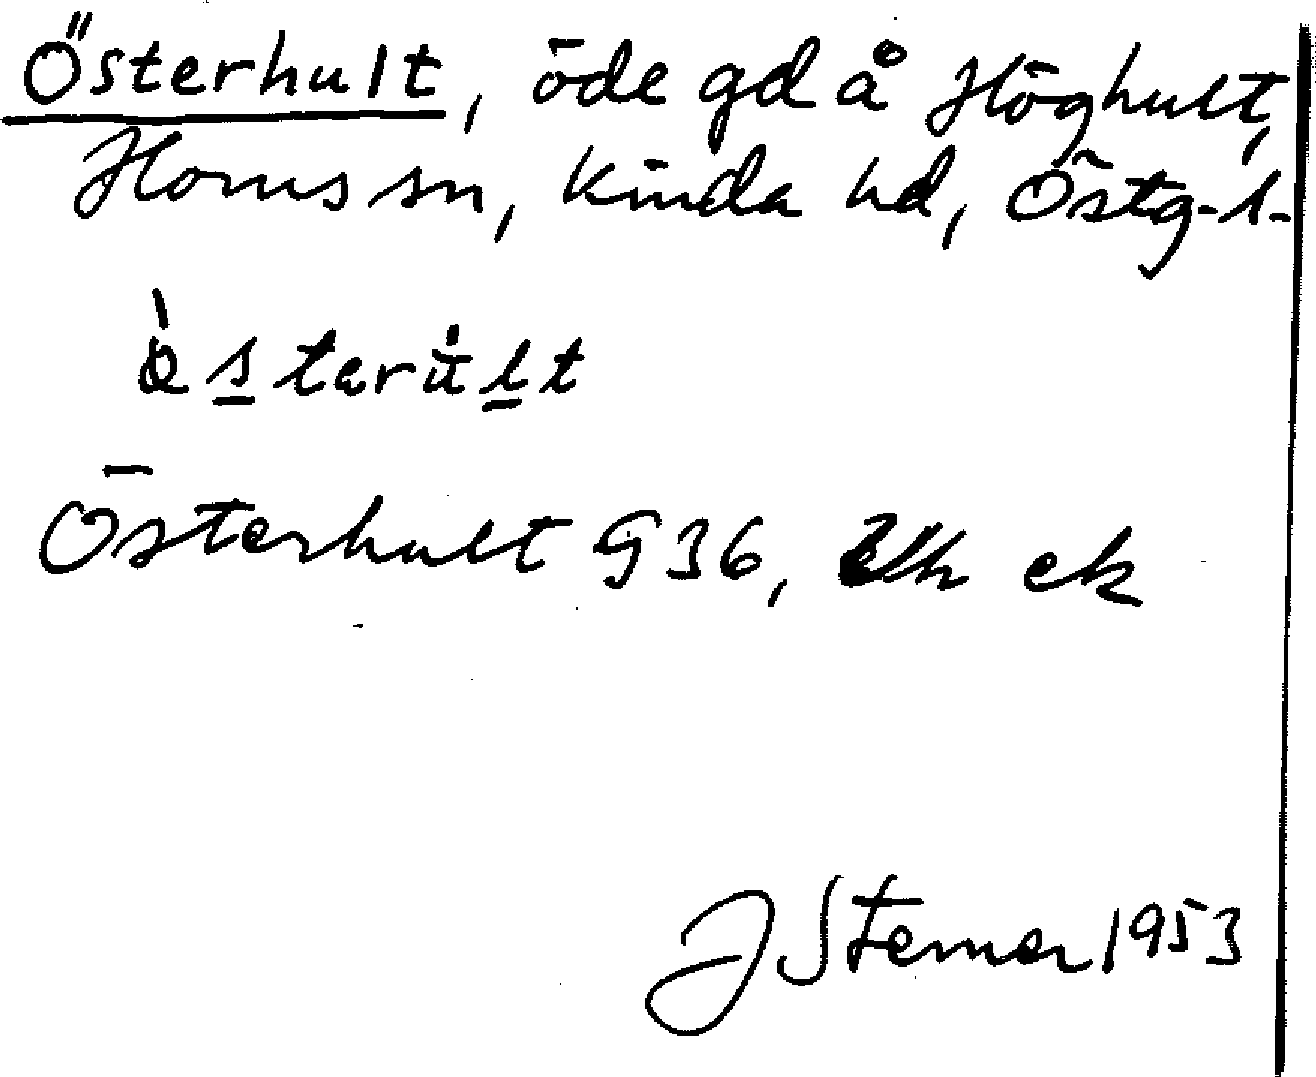 Österhult, öde gd å Höghult,
Horns sn, Kinda hd, Östg-l-
Österhult 936, ek
J Sterner 1953